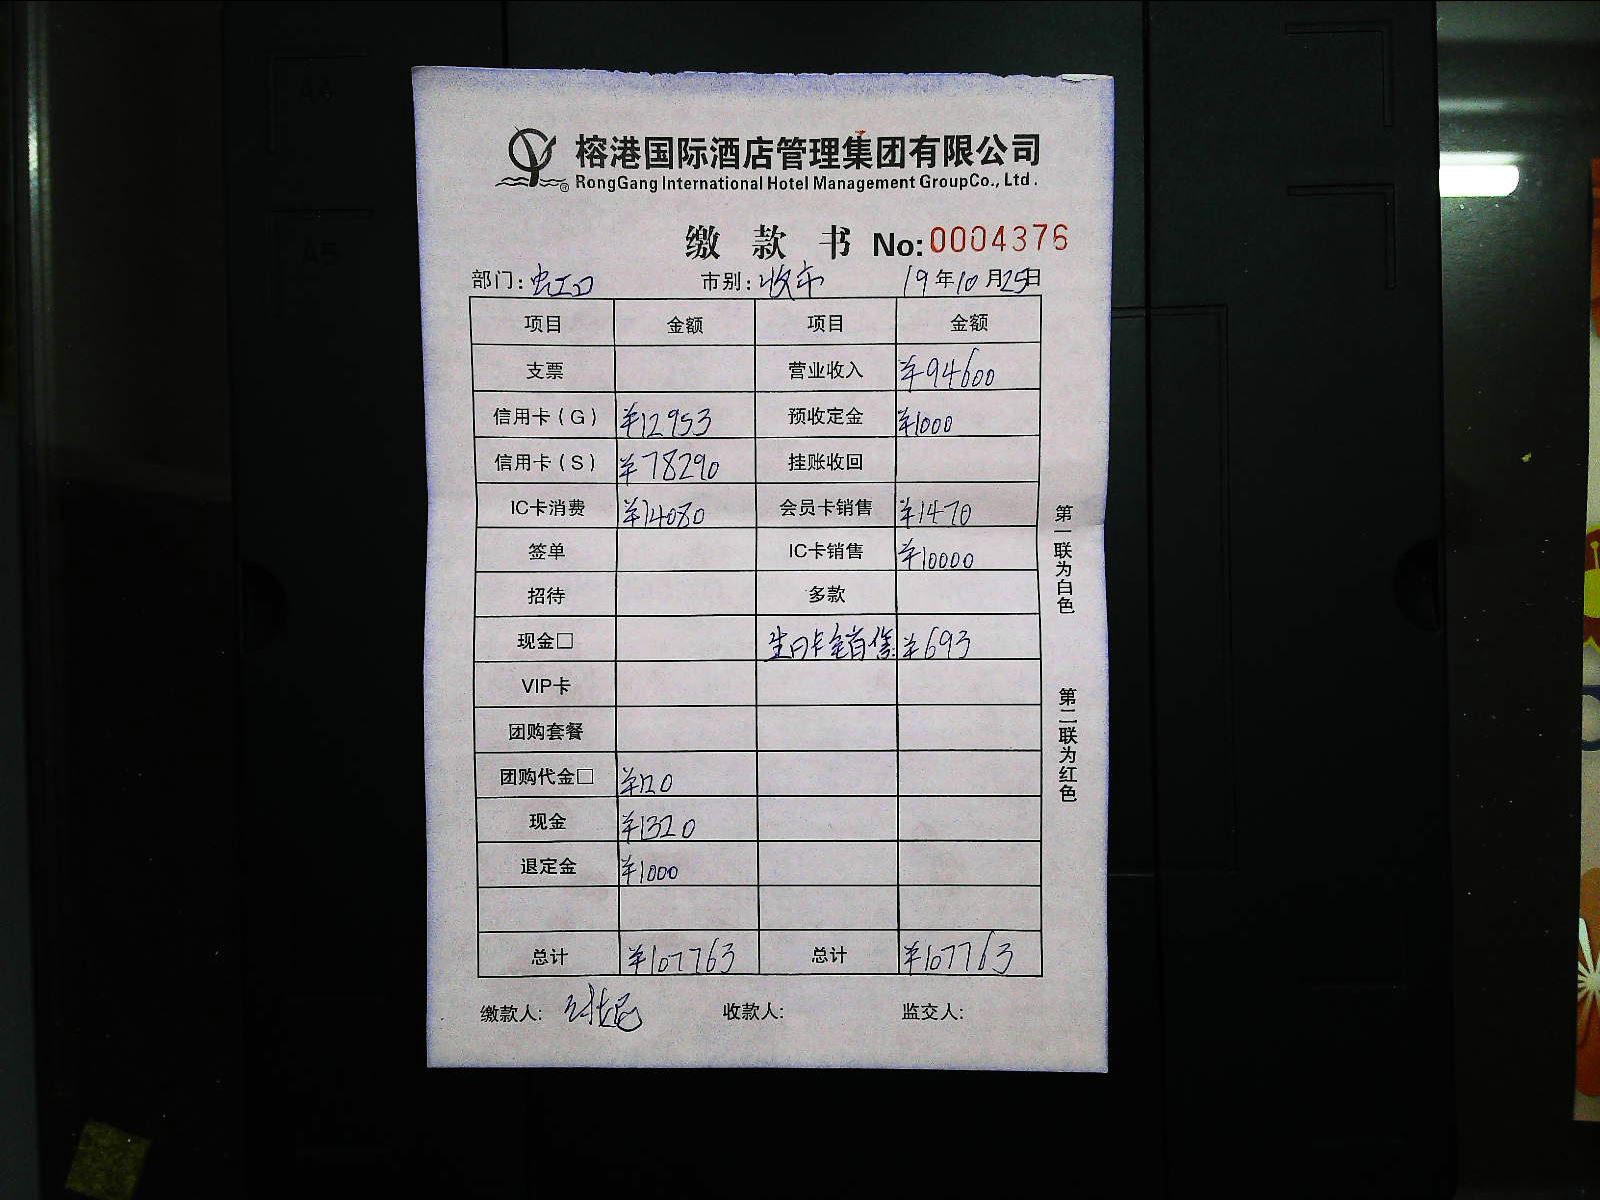 榕港国际酒店管理集团有限公司
® RongGang International Hotel Management GroupCo., Ltd.
缴款书 No:0004376
部门:虹口 市别:收市 19年10月25日
项目 金额 项目 金额
支票 营业收入 ¥94600
信用卡(G) ¥12953 预收定金 ¥1000
信用卡(S) ¥78290 挂账收回
IC卡消费 ¥14080 会员卡销售 ¥1470
签单 IC卡销售 ¥10000
招待 多款
现金□ 生日卡 ¥693
VIP卡
团购套餐
团购代金□ ¥120
现金 ¥1320
退定金 ¥1000
总计 ¥107763 总计 ¥107763
缴款人: 收款人: 监交人:
第一联为白色
第二联为红色
A4
A5